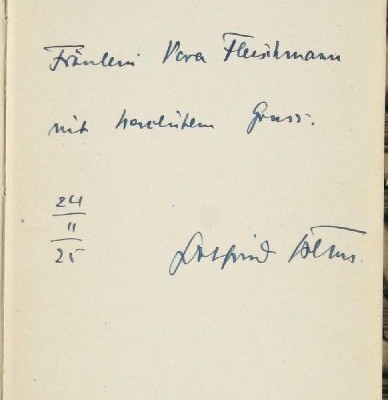 Fräulein Vera Fleischmann
mit herzlichem Gruss.
24
11
25
Gottfried Benn.